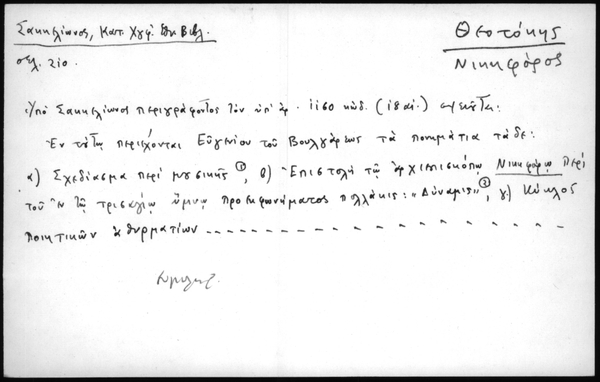 Σακκελίωνος, Κατ. Χγφ. Ἐθν. Βιβλ.
σελ. 210.
Θεοτόκης
Νικηφόρος
Ὑπὸ Σακκελίωνος περιγράφοντος τὸν ὑπ' ἀρ. 1160 κώδ. (18 αἰ.)
Ἐν τούτῳ περιέχονται Εὐγενίου τοῦ Βουλγάρεως τὰ πονημάτια τάδε:
α) Σχεδίασμα περὶ μουσικῆς ①, β) Ἐπιστολὴ τῷ ἀρχιεπισκόπῳ Νικηφόρῳ περὶ
τοῦ ἐν τῷ τρισαγίῳ ὕμνῳ προεκφωνήματος πολλάκις: "Δύναμις" ②, γ) Κύκλος
ποιητικῶν ἀθυρματίων